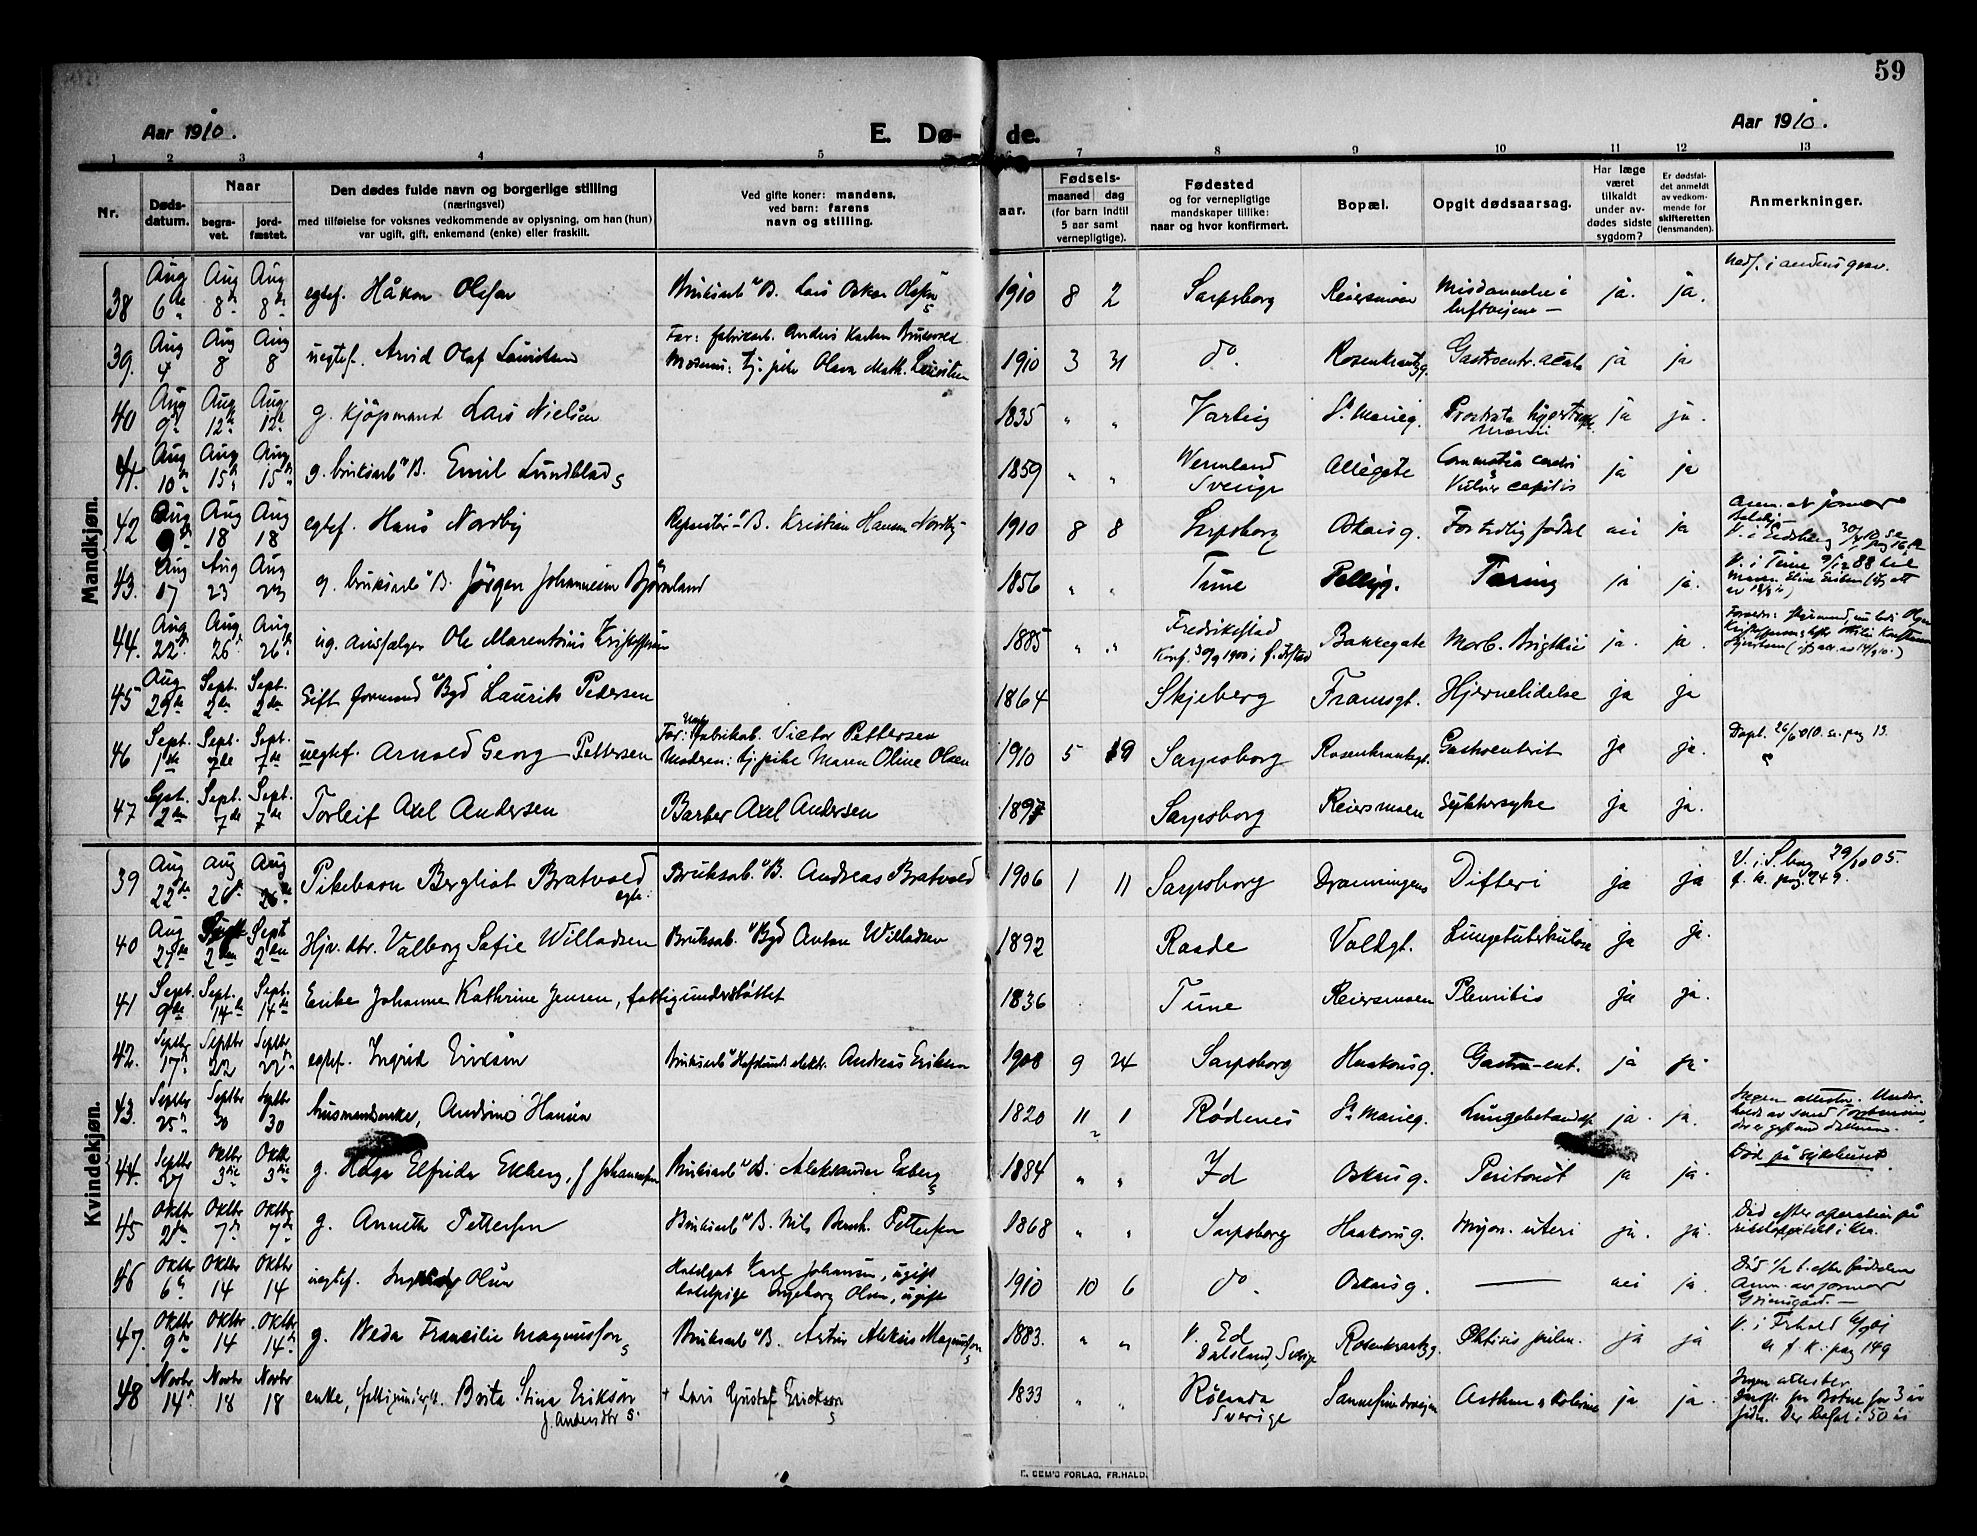 59
Aar 1910.
E. Dø-
de.
Aar 1910.
1 2 3 4 5 6 7 8 9 10 11 12 13
Nr.
Døds-
datum.
Naar
begra-
vet.
jord-
fæstet.
Den dødes fulde navn og borgerlige stilling
(næringsvei)
med tilføielse for voksnes vedkommende av oplysning, om han (hun)
var ugift, gift, enkemand (enke) eller fraskilt.
Ved gifte koner: mandens,
ved barn: farens
navn og stilling.
aar.
Fødsels-
maaned dag
(for barn indtil
5 aar samt
vernepligtige).
Fødested
og for vernepligtige
mandskaper tillike:
naar og hvor konfirmert.
Bopæl.
Opgit dødsaarsag.
Har læge
været
tilkaldt
under av-
dødes sidste
sygdom?
Er dødsfal-
det anmeldt
av vedkom-
mende for
skifteretten
(lensmanden).
Anmerkninger.
Mandkjøn.
38 Aug 6te Aug 8de Aug 8de egtef. Håkon Olsen Bruksarb v B. Lars Oskar Olsen 1910 8 2 Sarpsborg Reiersmoen Misdannelse i luftveiene — ja. ja.
39. Aug 4 Aug 8 Aug 8 uegtef. Arvid Olaf Lauritsen Far: fabrikarb. Anders Karlsen
Moderen: tj. pike Olava Math. Lauritsen 1910 3 31 do. Rosenkrantzg. Gastroent. acuta ja ja
40 Aug 9de Aug 12te Aug. 12te g. kjøpmand Lars Nielsen 1835 " " Varteig St. Marieg. Prostata ja ja.
41. Aug 10de Aug 15de Aug 15de g. bruksarb v B. Emil Lundblad s 1859 " " Wermland Sverige Allégate Commotio cerebri Vulnus capitis ja ja
42 Aug 9de Aug 18 Aug 18 egtef. Hans Nordby Reparatør v B. Kristian Hansen Nordby 1910 8 8 Sarpsborg Oskarsg. For tidlig fødsel nei ja
43. Aug 17 Aug 23 Aug 23 g. bruksarb v B. Jørgen Johannesen Bjørnland 1856 " " Tune Pellyg. Tæring ja ja. V. i Tune 9/12 88
44. Aug 22de Aug 26de Aug 26de ug. Ole Marentius Kristoffersen 1885 " " Fredrikstad
Konf. 30/9 1900 i Bakkegate Morb. Brigthii ja. ja.
45 Aug 29de Sept. 2den Sept. 2den Gift formand v Byd Laurits Pedersen 1864 Skjeberg Framsgt. Hjernelidelse ja ja
46 Sept. 1ste Sept. 7de Sept. 7de uegtef. Arnold Georg Pettersen Far: Ungk. fabrikab. Victor Pettersen
Moderen: tj. pike Maren Oline Olsen 1910 5 19 Sarpsborg Rosenkrantzgt. Gastroenterit ja ja. Døpt. 26/6 1910. se pag 13.
47 Sept. 2den Sept. 7de Sept. 7de Torleif Axel Andersen Barber Axel Andersen 1897 Sarpsborg Reiersmoen ja ja.
Kvindekjøn.
39 Aug 22de Aug 26de Aug 26de Pikebarn Bergliot Bratvold
egte. Bruksab. v B. Andreas Bratvold 1906 1 11 Sarpsborg Dronningens Difteri ja ja V. i S.borg 29/10 05.
f. k. pag. 249.
40 Aug 27de Sept 2den Sept 2den Hjv. dtr. Valborg Sofie Willadsen Bruksab. v Byd Anton Willadsen 1892 Raade Voldgt. Lungetuberkulose ja ja.
41 Sept. 9de Sept. 14de Sept. 14de Enke Johanne Kathrine Jensen, fattigunderstøttet 1836 Tune Reiersmoen Pleuritis ja ja.
42. Septbr 17de Septbr 22 Septbr 22de egtef. Ingrid Eriksen Bruksarb v Hafslund elektr. Andreas Eriksen 1908 9 24 Sarpsborg Haakonsg. Gastro-ent. ja ja.
43. Septbr 25de Septbr 30 Septbr 30 husmandsenke, Andrine Hansen 1820 11 1 Rødenes St. Marieg. Lungebetændelse ja. ja. Ingen attester.
44. Septbr 27 Oktbr 3die Oktbr 3die g. Helga Elfride Ekberg, f Johannesen Bruksarb v B. Aleksander Ekberg s 1884 " " Id Oskarsg. Peritonit ja ja. Død på sykehuset.
45 Oktbr 2den Oktbr 7de Oktbr 7de g. Annette Pettersen Bruksarb v B. Nils Bernh. Pettersen 1868 " " Sarpsborg Haakonsg. Myom. uteri ja. ja. Død efter operation på
rikshospitalet i Kra.
46 Oktbr 6te Oktbr 14 Oktbr 14 uegtef. Olsen Karl Johansen, ugift
Ingeborg Olsen, ugift 1910 10 6 do. Oskarsg. — nei ja. Død 1/2 t. efter fødselen
Anm. av jormor
47. Oktbr 9de Oktbr 14 Oktbr 14de g. Neda Fransilie Magnusson s Bruksarb v B. Magnusson s 1883. " " v. Ed
Dalsland, Sverige Rosenkrantzg. Phtisis pulm. ja ja V. i Frhald
f. k. pag 149
48 Novbr 14de Novbr 18 Novbr 18 enke, fattigunderst. Brita Stina Erikson
f. Andersdtr s. + Lars Gustaf Erickson s 1833 " " Rølanda
Sverige ja ja. Ingen attester
E. SEM'S FORLAG, FR.HALD.